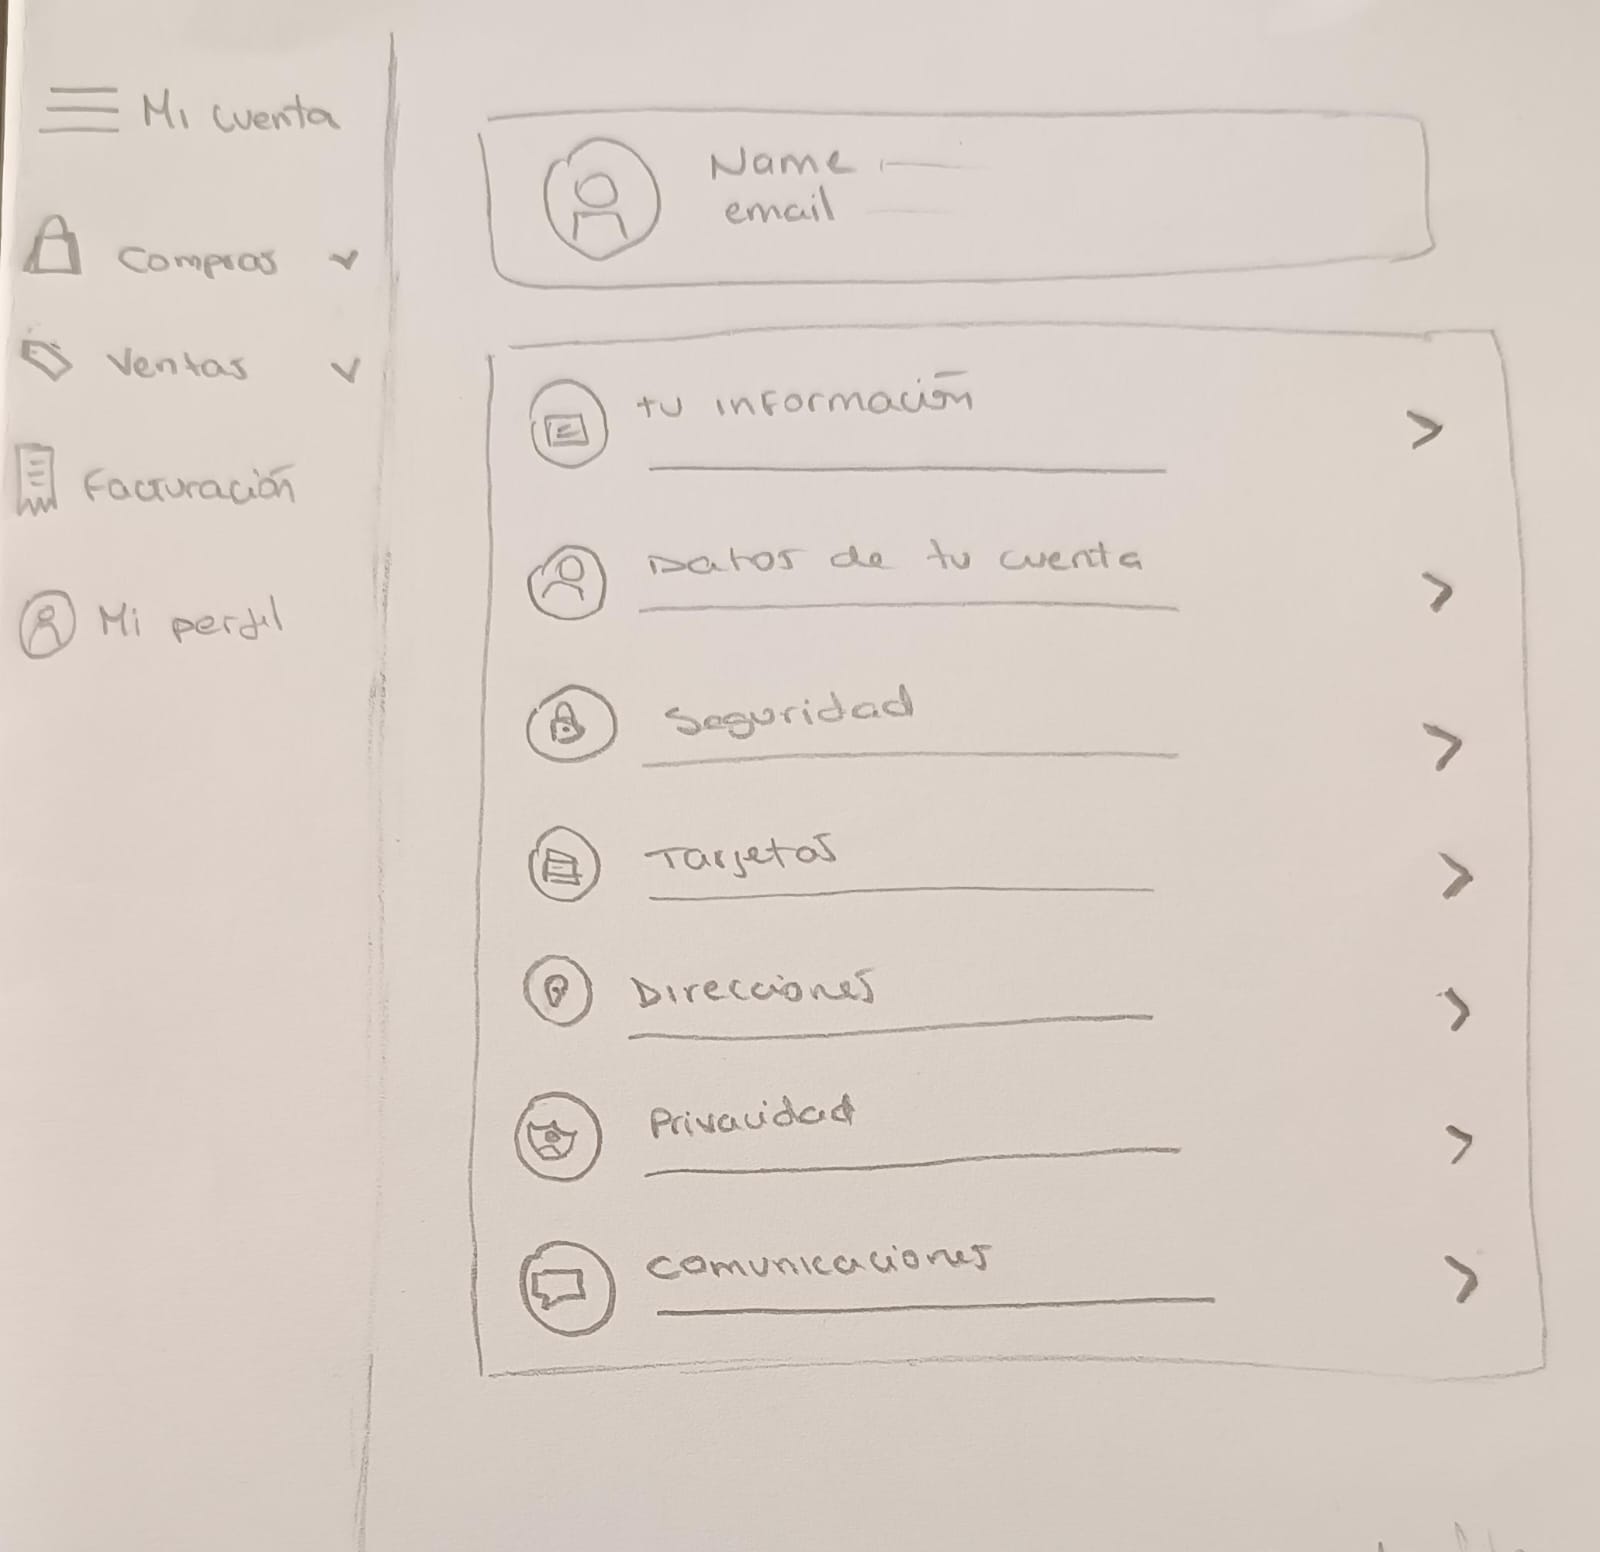 Mi cuenta
Compras
Ventas
Facturación
Mi perfil
Name
email
tu información
Datos de tu cuenta
Seguridad
Tarjetas
Direcciones
Privacidad
Comunicaciones